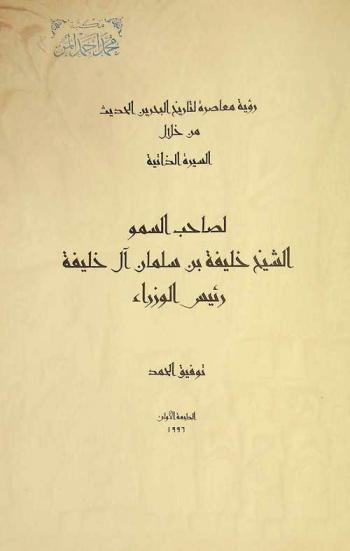 مكتبة
محمد أحمد المر
رؤية معاصرة لتاريخ البحرين الحديث
من خلال
السيرة الذاتية
لصاحب السمو
الشيخ خليفة بن سلمان آل خليفة
رئيس الوزراء
توفيق الحمد
الطبعة الأولى
١٩٩٦